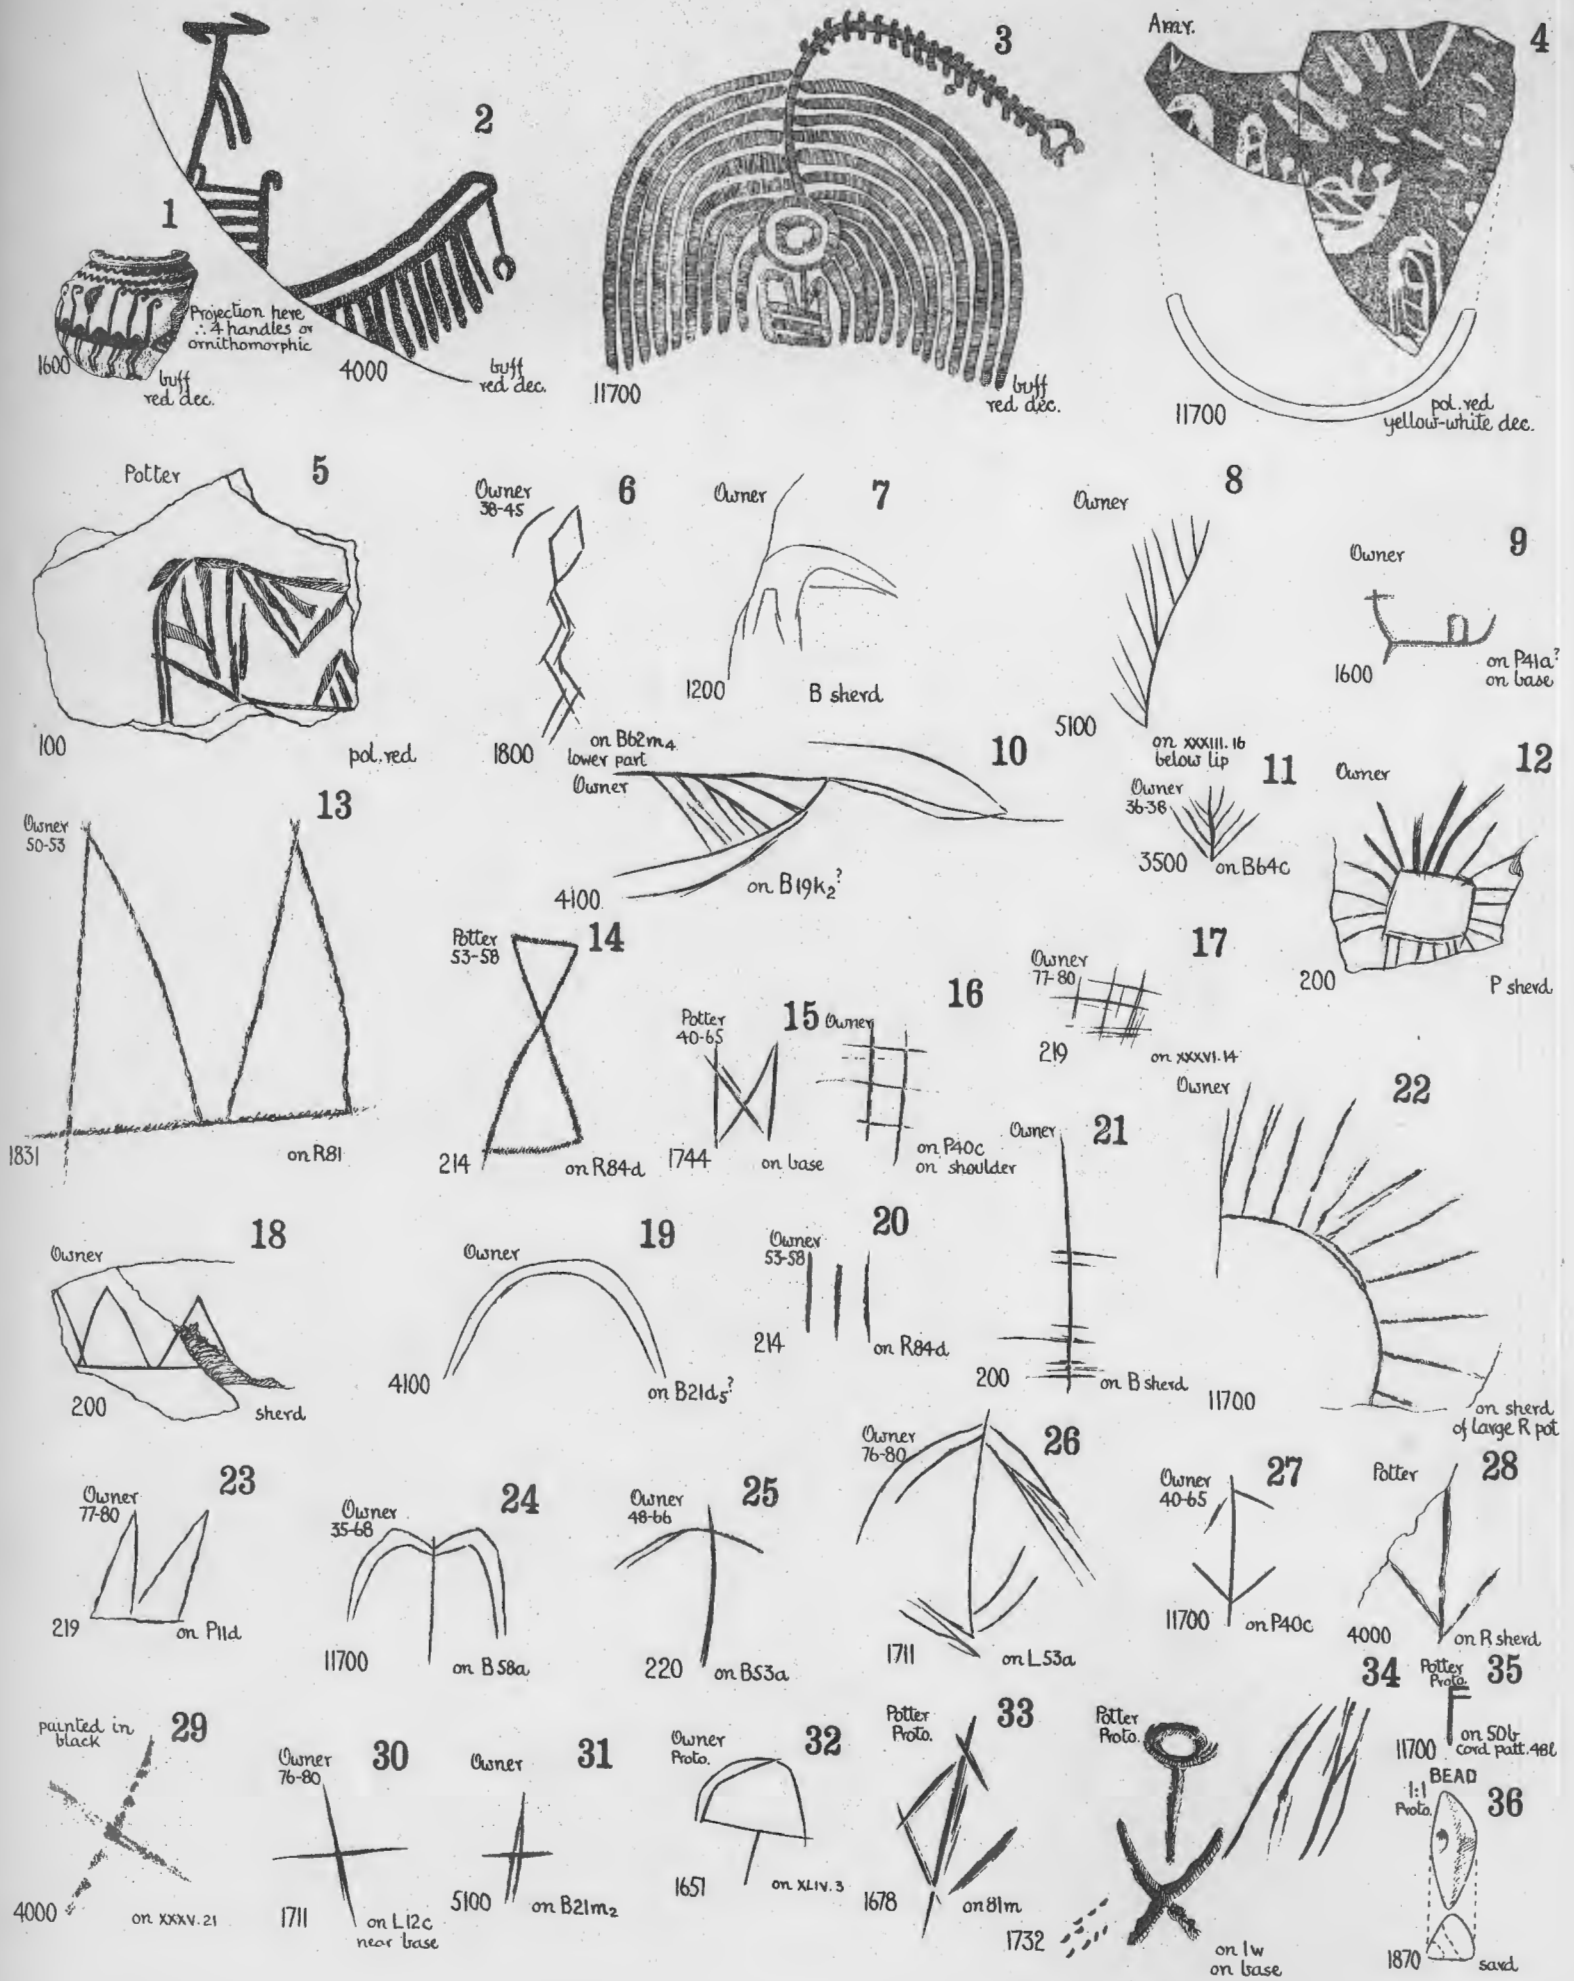 1
1600
buff
red dec.
2
Projection here
∴ 4 handles or
ornithomorphic
4000
buff
red dec.
3
11700
buff
red dec.
4
Amr.
11700
pol. red
yellow-white dec.
5
Potter
100
pol. red
6
Owner
38-45
1800
on B62m4
lower part
7
Owner
1200
B sherd
8
Owner
5100
on XXXIII.16
below lip
9
Owner
1600
on P41a?
on base
10
Owner
4100
on B19k2?
11
Owner
36-38
3500
on B64c
12
Owner
200
P sherd
13
Owner
50-53
1831
on R81
14
Potter
53-58
214
on R84d
15
Potter
40-65
1744
on base
16
Owner
on P40c
on shoulder
17
Owner
77-80
219
on XXXVI.14
18
Owner
200
sherd
19
Owner
4100
on B21d5?
20
Owner
53-58
214
on R84d
21
Owner
200
on B sherd
22
Owner
11700
on sherd
of large R pot
23
Owner
77-80
219
on P11d
24
Owner
35-68
11700
on B58a
25
Owner
48-66
220
on B53a
26
Owner
76-80
1711
on L53a
27
Owner
40-65
11700
on P40c
28
Potter
4000
on R sherd
29
painted in
black
4000
on XXXV.21
30
Owner
76-80
1711
on L12c
near base
31
Owner
5100
on B21m2
32
Owner
Proto.
1651
on XLIV.3
33
Potter
Proto.
1678
on 81m
34
Potter
Proto.
1732
on 1w
on base
35
Potter
Proto.
11700
on 50b
cord patt. 48l
36
BEAD
1:1
Proto.
1870
sard